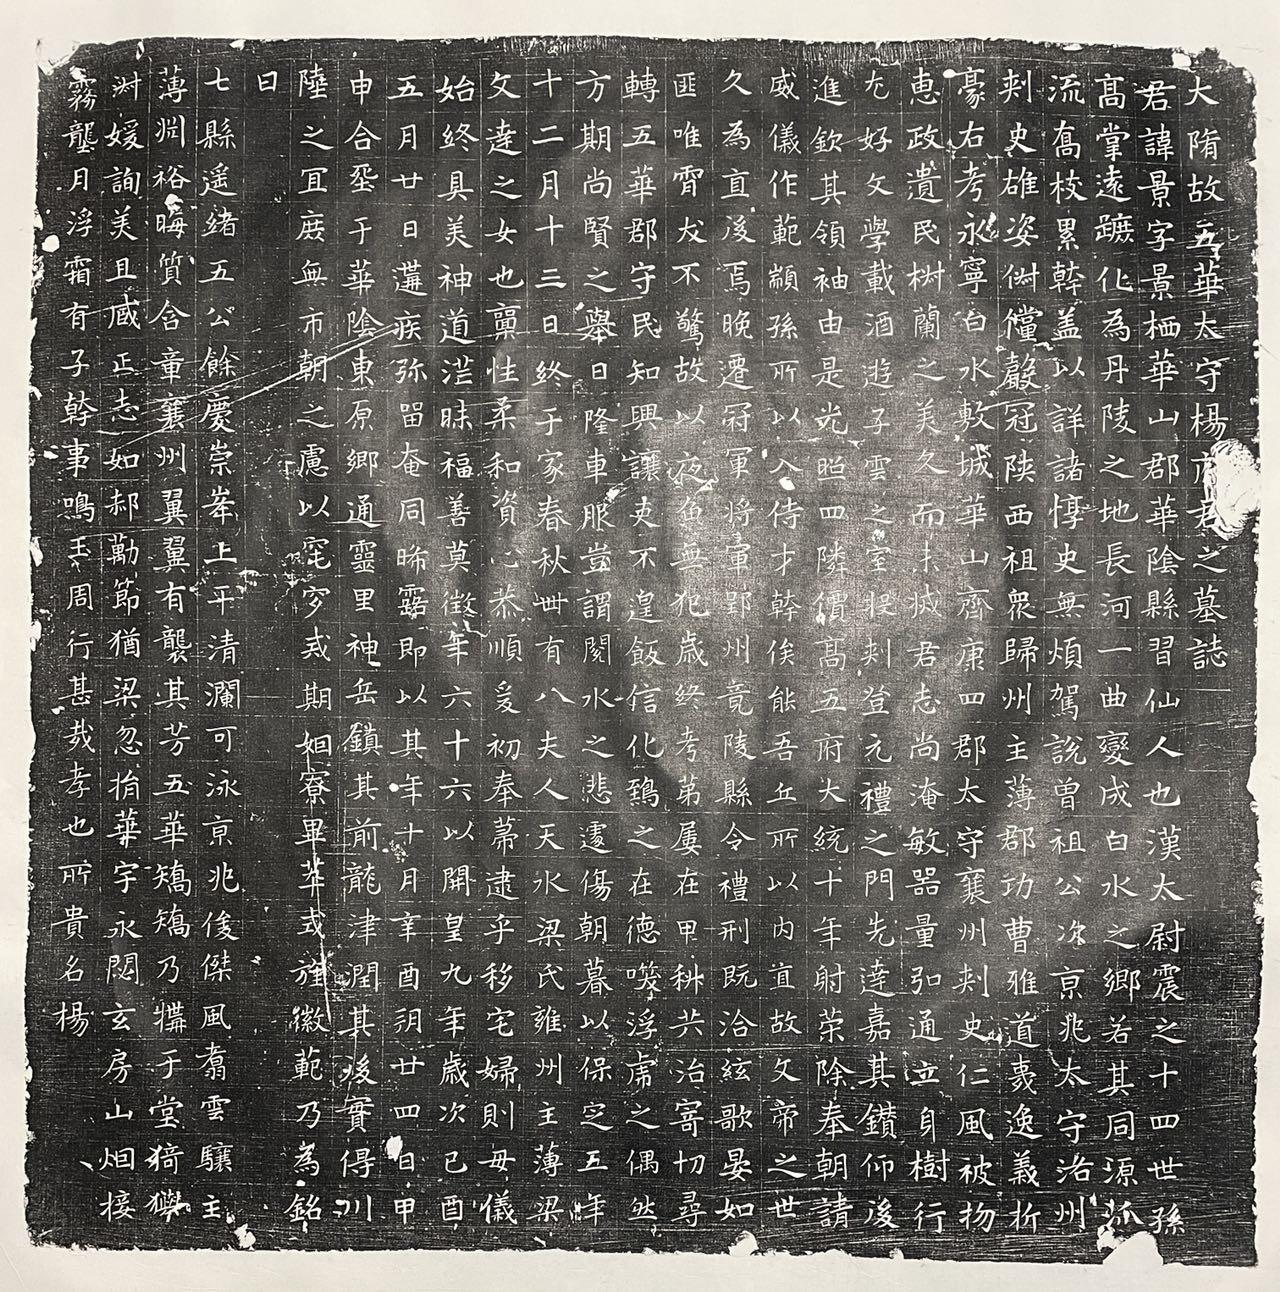 大隋故五華太守楊府君之墓誌
君諱景字景栖華山郡華陰縣習仙人也漢太尉震之十四世孫
高掌遠蹠化為丹陵之地長河一曲變成白水之鄉若其同源派
流喬枝累幹盖以詳諸惇史無煩駕說曾祖公次京兆太守洛州
刺史雄姿倜儻嚴冠陝西祖眾歸州主薄郡功曹雅道裹逸義折
豪右考永寧白水敷城華山齊康四郡太守襄州刺史仁風被物
惠政遺民樹蘭之美久而未缄君志尚淹敏器量弘通立身樹行
尤好文學載酒遊子雲之室投刺登元禮之門先達嘉其鑽仰後
進欽其領袖由是光照四隣價高五府大統十年射荣除奉朝請
威儀作範顓孫所以入侍才幹俟能吾丘所以内直故文帝之世
久為直後焉晚遷冠軍将軍郢州竟陵縣令禮刑既洽絃歌晏如
匪唯霄犮不驚故以夜魚無犯歲終考第屢在甲科共治寄切尋
轉五華郡守民知興讓吏不遑飯信化鵄之在德嗤浮虎之偶然
方期尚賢之舉日隆車服豈謂閱水之悲遽傷朝暮以保定五年
十二月十三日終于家春秋卌有八夫人天水梁氏雍州主薄梁
文達之女也稟性柔和資心恭順爰初奉帚逮乎移宅婦則母儀
始終具美神道茫昧福善莫徵年六十六以開皇九年歲次己酉
五月廿日遘疾弥留奄同晞露即以其年十月辛酉朔廿四日甲
申合塟于華陰東原鄉通靈里神岳鎮其前龍津潤其後實得川
陸之宜庶無市朝之慮以窀穸戒期姻寮畢萃式旌徽範乃為銘
曰
七縣遥緒五公餘慶崇峯上干清瀾可泳京兆俊傑風翥雲驤主
薄淵裕晦質含章襄州翼翼有襲其芳五華矯矯乃搆于堂猗歟
淋媛詢美且臧正志如郝勤節猶梁忽捐華宇永閟玄房山烟接
霧壟月浮霜有子幹事鳴玉周行甚哉孝也所貴名楊